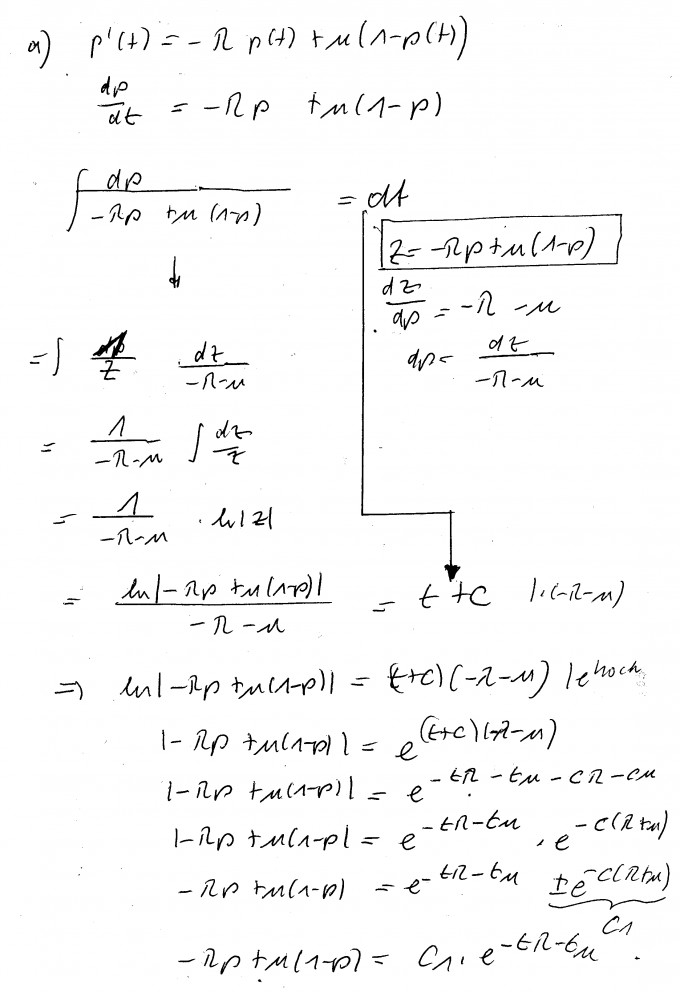 a) p'(t) = -λ p(t) + μ(1-p(t))
dp/dt = -λp + μ(1-p)
∫ dp/(-λp + μ(1-p)) = dt
z = -λp + μ(1-p)
dz/dp = -λ - μ
dp = dz/(-λ-μ)
= ∫ 1/z dz/(-λ-μ)
= 1/(-λ-μ) ∫ dz/z
= 1/(-λ-μ) · ln|z|
= ln|-λp + μ(1-p)|/(-λ-μ) = t + C |·(-λ-μ)
⇒ ln|-λp + μ(1-p)| = (t+C)(-λ-μ) |e hoch
|-λp + μ(1-p)| = e^((t+C)(-λ-μ))
|-λp + μ(1-p)| = e^(-tλ-tμ-Cλ-Cμ)
|-λp + μ(1-p| = e^(-tλ-tμ) · e^(-C(λ+μ))
-λp + μ(1-p) = e^(-tλ-tμ) ±e^(-C(λ+μ))
C1
-λp + μ(1-p) = C1 · e^(-tλ-tμ).